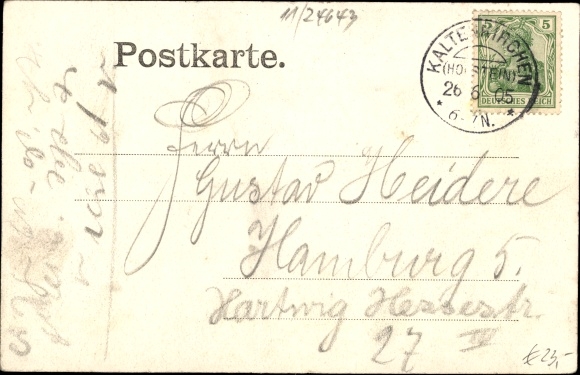 11/24643
Postkarte.
KALTENKIRCHEN
(HOLSTEIN)
26 6 05
* 6-7N. *
5
DEUTSCHES REICH
Herrn
Gustav Heidere
Hamburg 5.
Hartwig Hessestr.
27 IV
€ 23,-